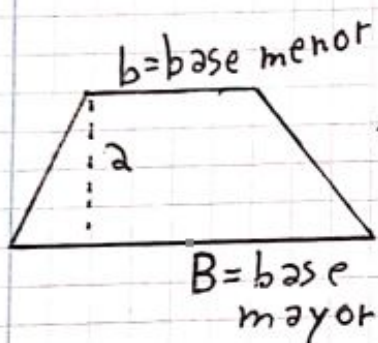 b=base menor
a
B=base
mayor